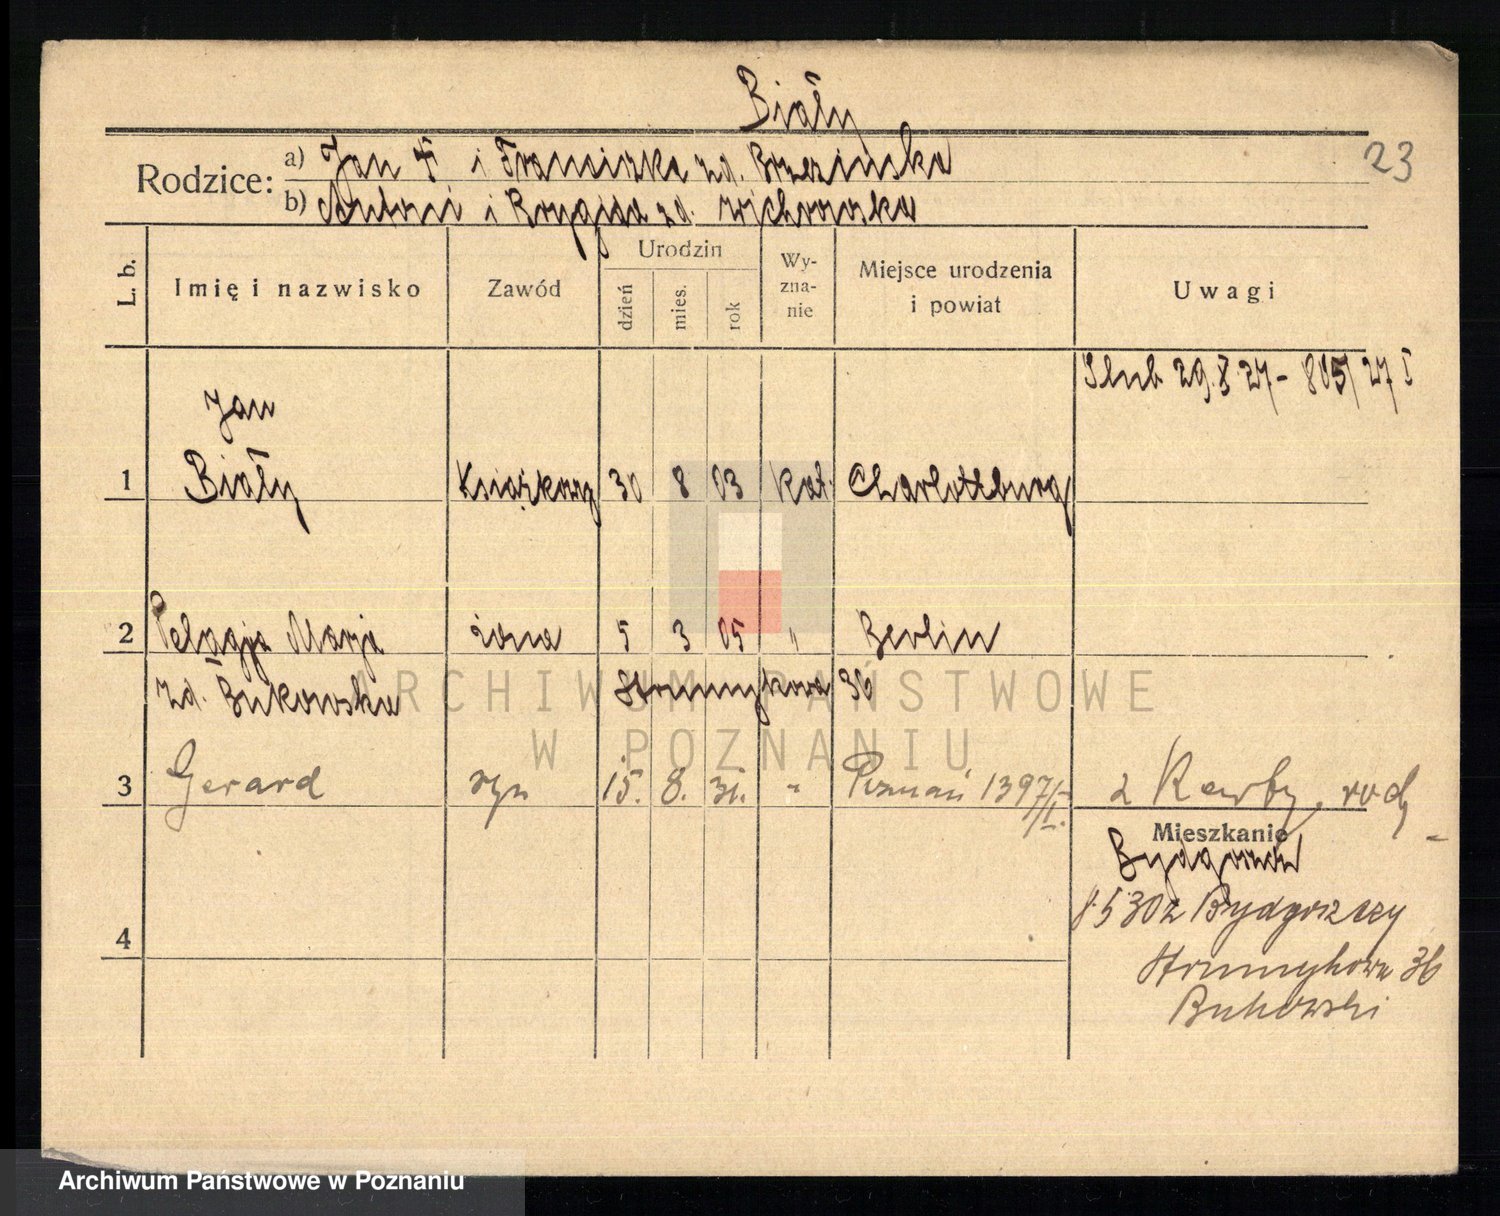 Biały
23
Rodzice: a) Jan i Franciszka zd. Brzezińska
b) Antoni i Brygida zd. Wichrowska
L. b. Imię i nazwisko Zawód Urodzin dzień mies. rok Wy-zna-nie Miejsce urodzenia i powiat Uwagi
Ślub 29.8 27 - 805/27 I
Jan
1 Biały Książkowy 30 8 03 kat. Charlottburg
2 Pelagja Marja żona 5 3 05 " Berlin
zd. Bukowska Strumykowa 36
ARCHIWUM PAŃSTWOWE
W POZNANIU
3 Gerard syn 15. 8. 31. " Poznań 1397/I. z rodz
Mieszkanie
Bydgoszcz
8530 z Bydgoszczy
4
Strumykowa 36
Bukowski
Archiwum Państwowe w Poznaniu